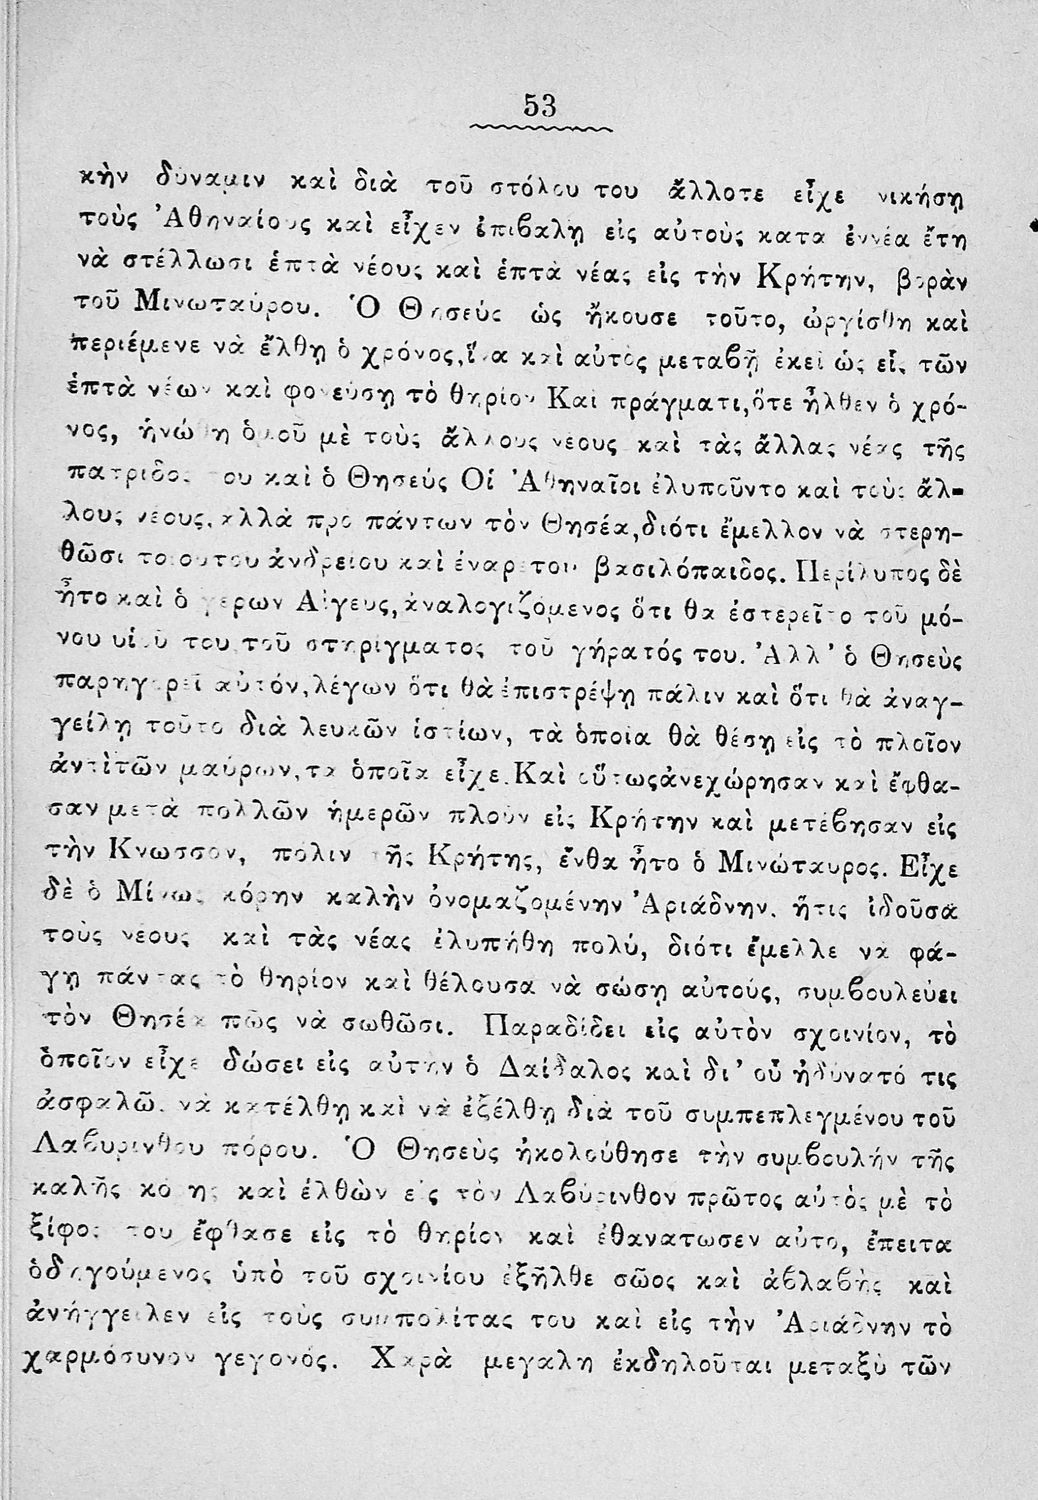 53
κὴν δύναμιν καὶ διὰ τοῦ στόλου του ἄλλοτε εἶχε νικήσῃ
τοὺς Ἀθηναίους καὶ εἶχεν ἐπιβαλῃ εἰς αὐτοὺς κατα ἐννέα ἔτη
νὰ στέλλωσι ἑπτὰ νέους καὶ ἑπτὰ νέας εἰς τὴν Κρήτην, βορὰν
τοῦ Μινωταύρου. Ὁ Θησεύς ὡς ἤκουσε τοῦτο, ὠργίσθη καὶ
περιέμενε νὰ ἔλθῃ ὁ χρόνος, ἵνα καὶ αὐτὸς μεταβῇ ἐκεῖ ὡς εἷς τῶν
ἑπτὰ νέων καὶ φονεύσῃ τὸ θηρίον Καὶ πράγματι, ὅτε ἦλθεν ὁ χρό-
νος, ἡνώθη ὁμοῦ μὲ τοὺς ἄλλους νέους καὶ τὰς ἄλλας νέας τῆς
πατρίδος του καὶ ὁ Θησεύς Οἱ Ἀθηναῖοι ἐλυποῦντο καὶ τοὺς ἄλ-
λους νέους, ἀλλὰ πρὸ πάντων τὸν Θησέα, διότι ἔμελλον νὰ στερη-
θῶσι τοιούτου ἀνδρείου καὶ ἐναρέτου βασιλόπαιδος. Περίλυπος δὲ
ἦτο καὶ ὁ γέρων Αἰγεὺς, ἀναλογιζόμενος ὅτι θὰ ἐστερεῖτο τοῦ μό-
νου υἱοῦ του τοῦ στηρίγματος τοῦ γήρατός του. Ἀλλ' ὁ Θησεὺς
παρηγορεῖ αὐτόν, λέγων ὅτι θὰ ἐπιστρέψῃ πάλιν καὶ ὅτι θὰ ἀναγ-
γείλῃ τοῦτο διὰ λευκῶν ἱστίων, τὰ ὁποῖα θὰ θέσῃ εἰς τὸ πλοῖον
ἀντὶ τῶν μαύρων, τὰ ὁποῖα εἶχε. Καὶ οὕτως ἀνεχώρησαν καὶ ἔφθα-
σαν μετὰ πολλῶν ἡμερῶν πλοῦν εἰς Κρήτην καὶ μετέβησαν εἰς
τὴν Κνωσσον, πόλιν τῆς Κρήτης, ἔνθα ἦτο ὁ Μινώταυρος. Εἶχε
δὲ ὁ Μίνως κόρην καλὴν ὀνομαζομένην Ἀριάδνην. ἥτις ἰδοῦσα
τοὺς νέους καὶ τὰς νέας ἐλυπήθη πολύ, διότι ἔμελλε νὰ φά-
γῃ πάντας τὸ θηρίον καὶ θέλουσα νὰ σώσῃ αὐτούς, συμβουλεύει
τὸν Θησέα πῶς νὰ σωθῶσι. Παραδίδει εἰς αὐτὸν σχοινίον, τὸ
ὁποῖον εἶχε δώσει εἰς αὐτὴν ὁ Δαίδαλος καὶ δι' οὗ ἠδύνατό τις
ἀσφαλῶς νὰ κατέλθῃ καὶ νὰ ἐξέλθῃ διὰ τοῦ συμπεπλεγμένου τοῦ
Λαβυρίνθου πόρου. Ὁ Θησεὺς ἠκολούθησε τὴν συμβουλήν τῆς
καλῆς κόρης καὶ ἐλθὼν εἰς τὸν Λαβύρινθον πρῶτος αὐτὸς μὲ τὸ
ξίφος του ἔφθασε εἰς τὸ θηρίον καὶ ἐθανάτωσεν αὐτο, ἔπειτα
ὁδηγούμενος ὑπὸ τοῦ σχοινίου ἐξῆλθε σῶος καὶ ἀβλαβὴς καὶ
ἀνήγγειλεν εἰς τοὺς συμπολίτας του καὶ εἰς τὴν Ἀριάδνην τὸ
χαρμόσυνον γεγονός. Χαρὰ μεγαλη ἐκδηλοῦται μεταξὺ τῶν